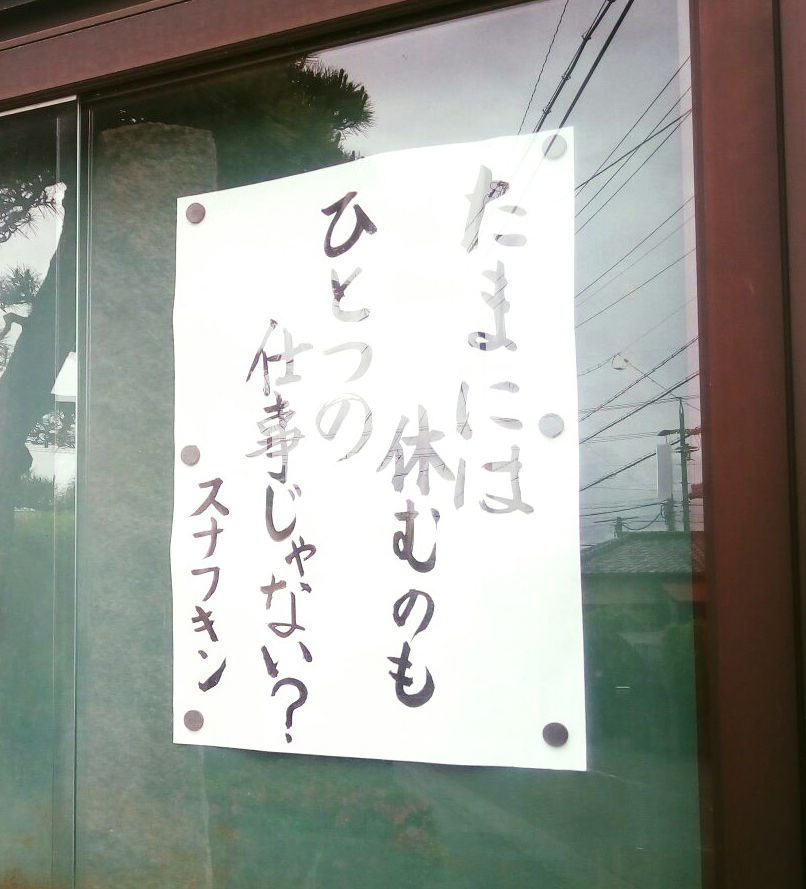 たまには
休むのも
ひとつの
仕事じゃない?
スナフキン